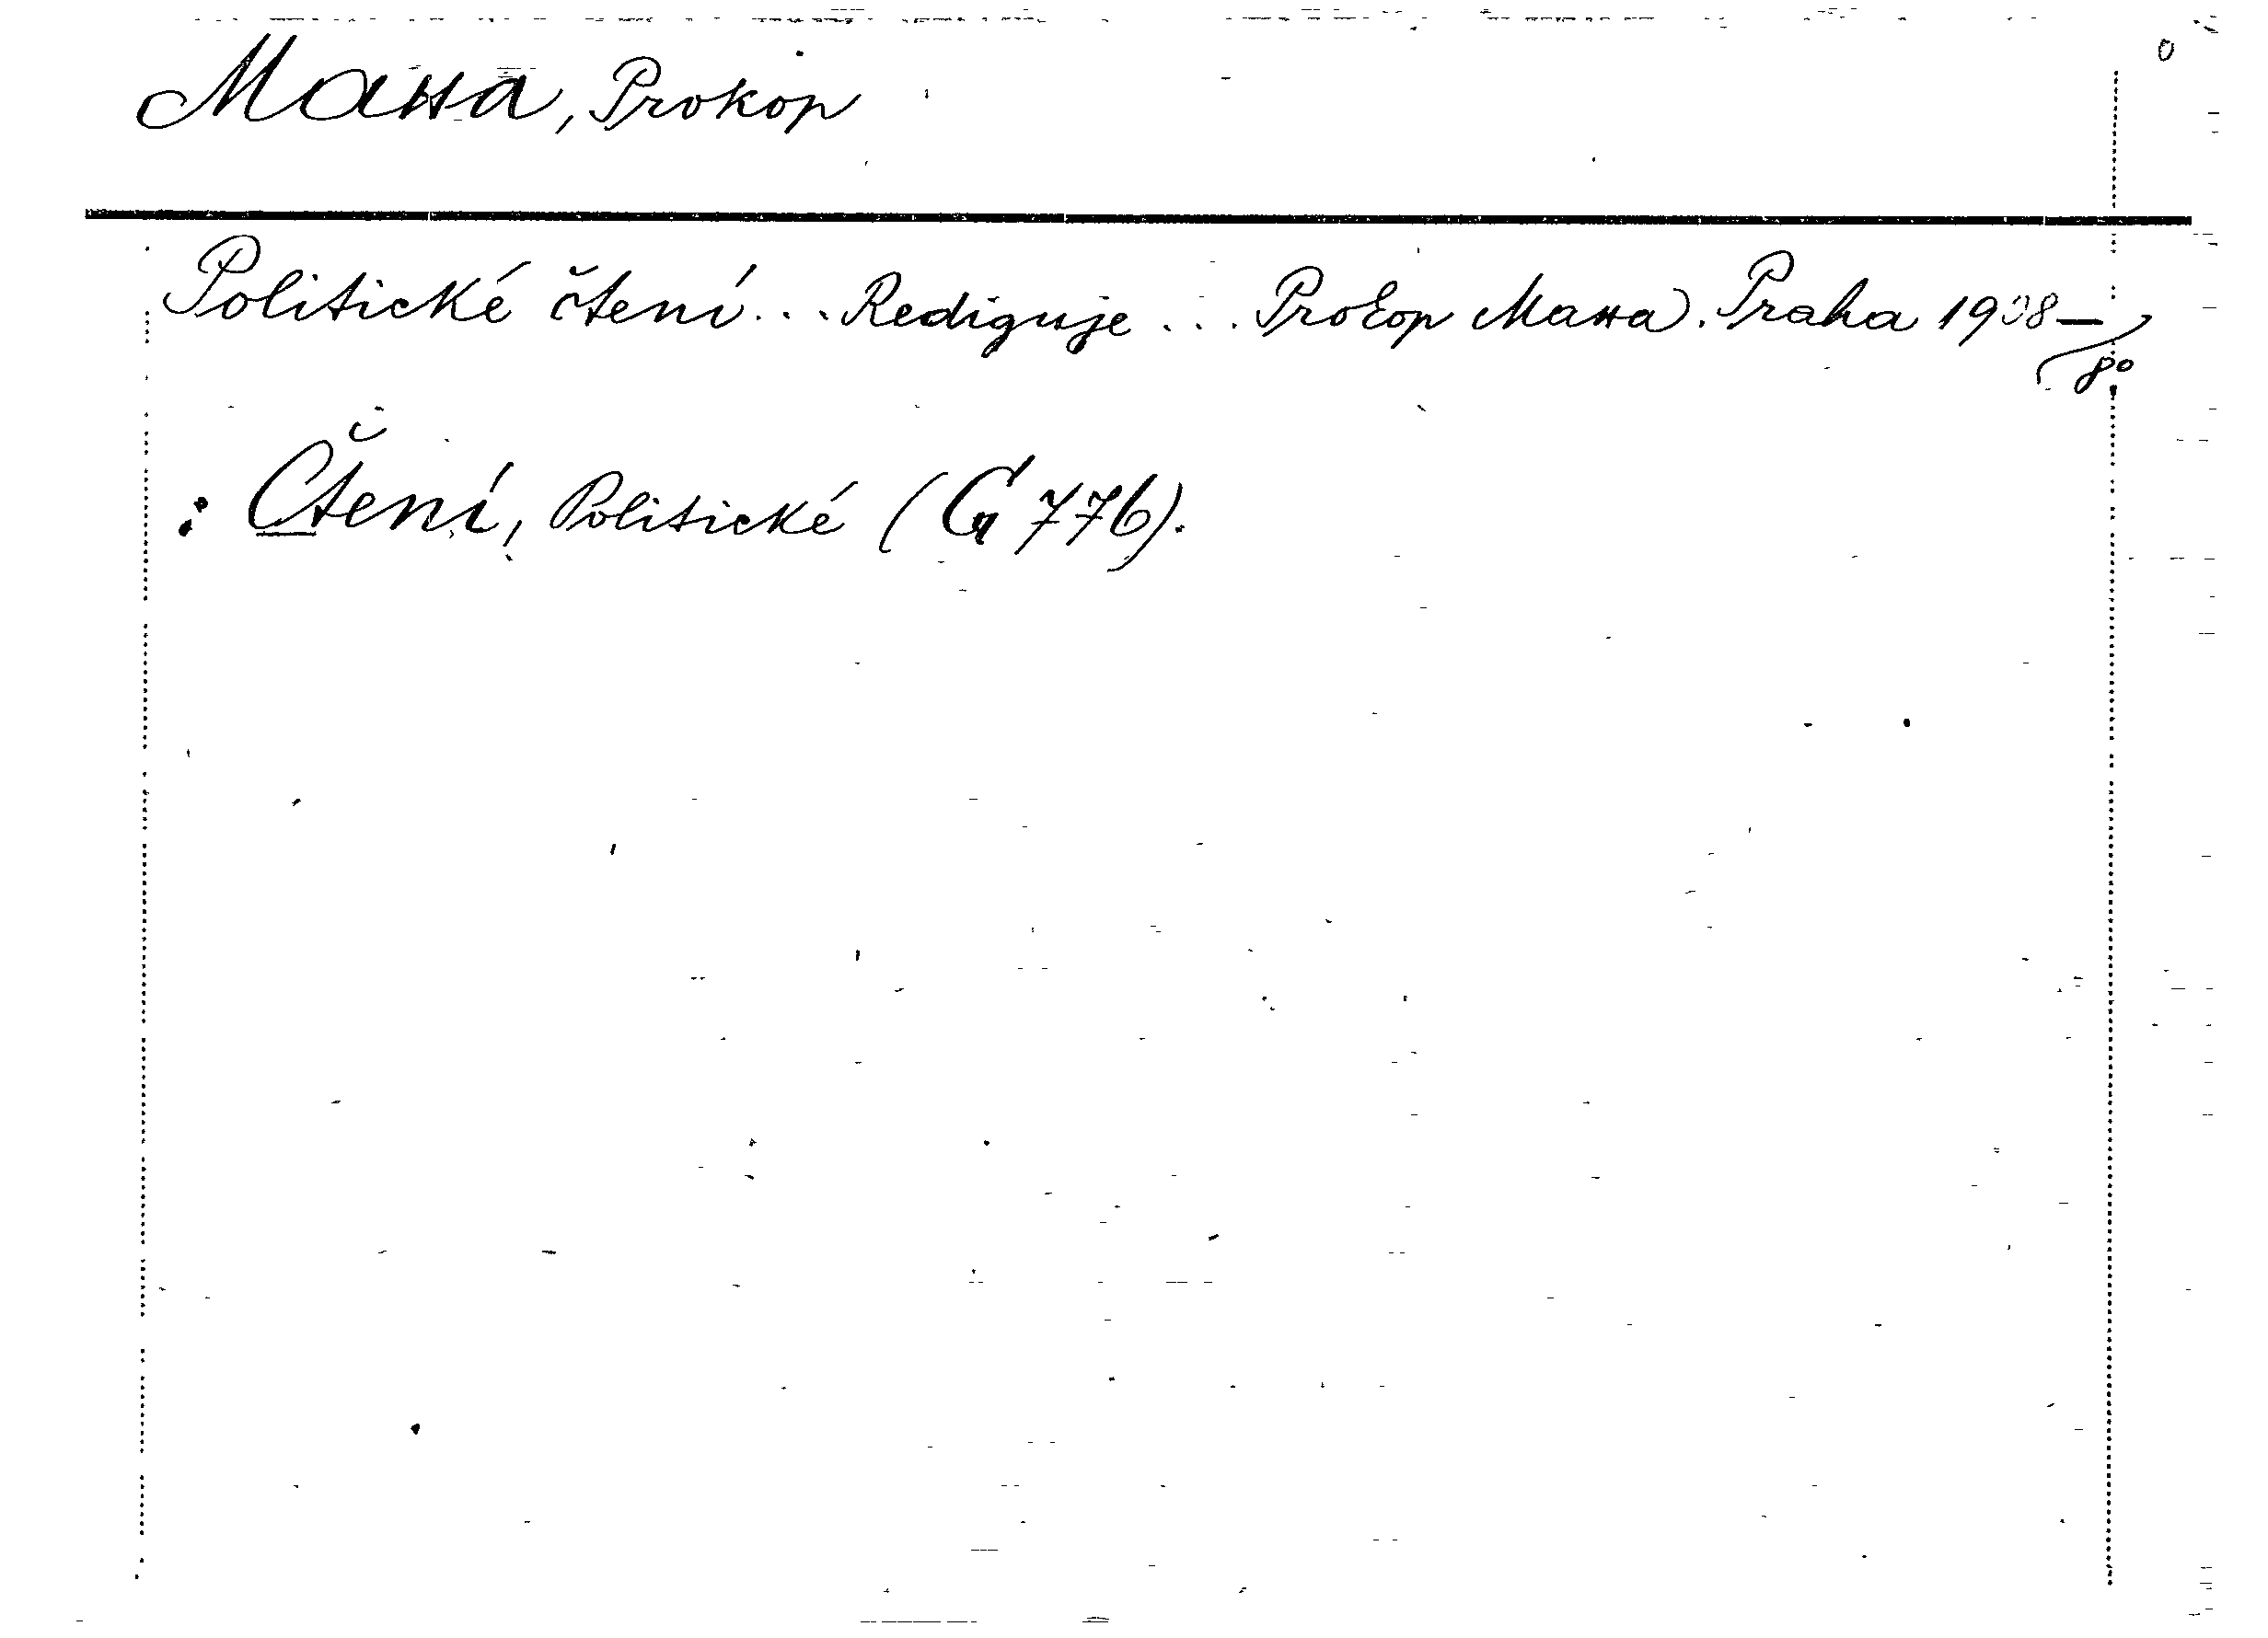 Maxa, Prokop
Politické čtení... Rediguje... Prokop Maxa. Praha 1908–
8°
: Čtení, Politické (G 776).